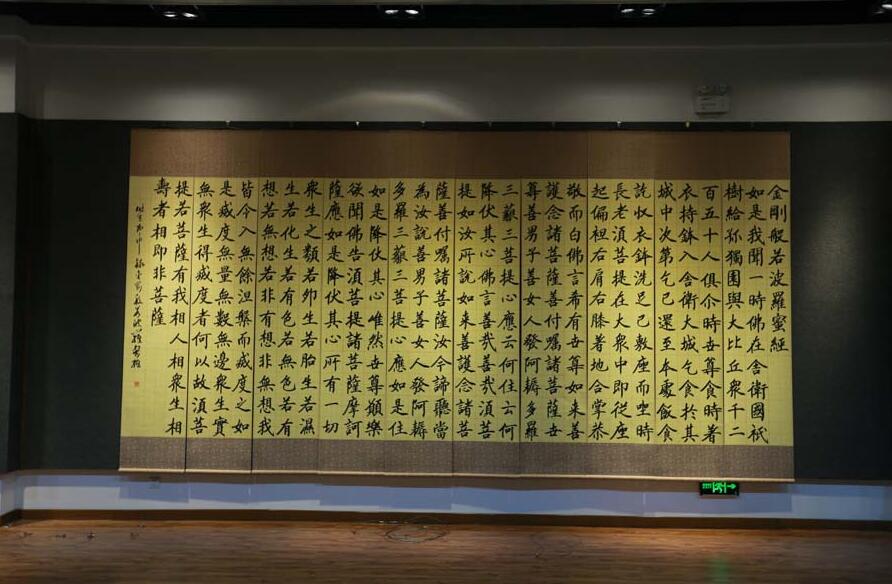 金剛般若波羅蜜經
如是我聞一時佛在舍衛國祇
樹給孤獨園與大比丘衆千二
百五十人俱尒時世尊食時著
衣持鉢入舍衛大城乞食於其
城中次第乞已還至本處飯食
訖收衣鉢洗足已敷座而坐時
長老須菩提在大衆中即從座
起偏袒右肩右膝著地合掌恭
敬而白佛言希有世尊如来善
護念諸菩薩善付囑諸菩薩世
尊善男子善女人發阿耨多羅
三藐三菩提心應云何住云何
降伏其心佛言善哉善哉須菩
提如汝所說如来善護念諸菩
薩善付囑諸菩薩汝今諦聽當
為汝說善男子善女人發阿耨
多羅三藐三菩提心應如是住
如是降伏其心唯然世尊願樂
欲聞佛告須菩提諸菩薩摩訶
薩應如是降伏其心所有一切
衆生之類若卵生若胎生若濕
生若化生若有色若無色若有
想若無想若非有想非無想我
皆令入無餘涅槃而滅度之如
是滅度無量無數無邊衆生實
無衆生得滅度者何以故須菩
提若菩薩有我相人相衆生相
壽者相即非菩薩